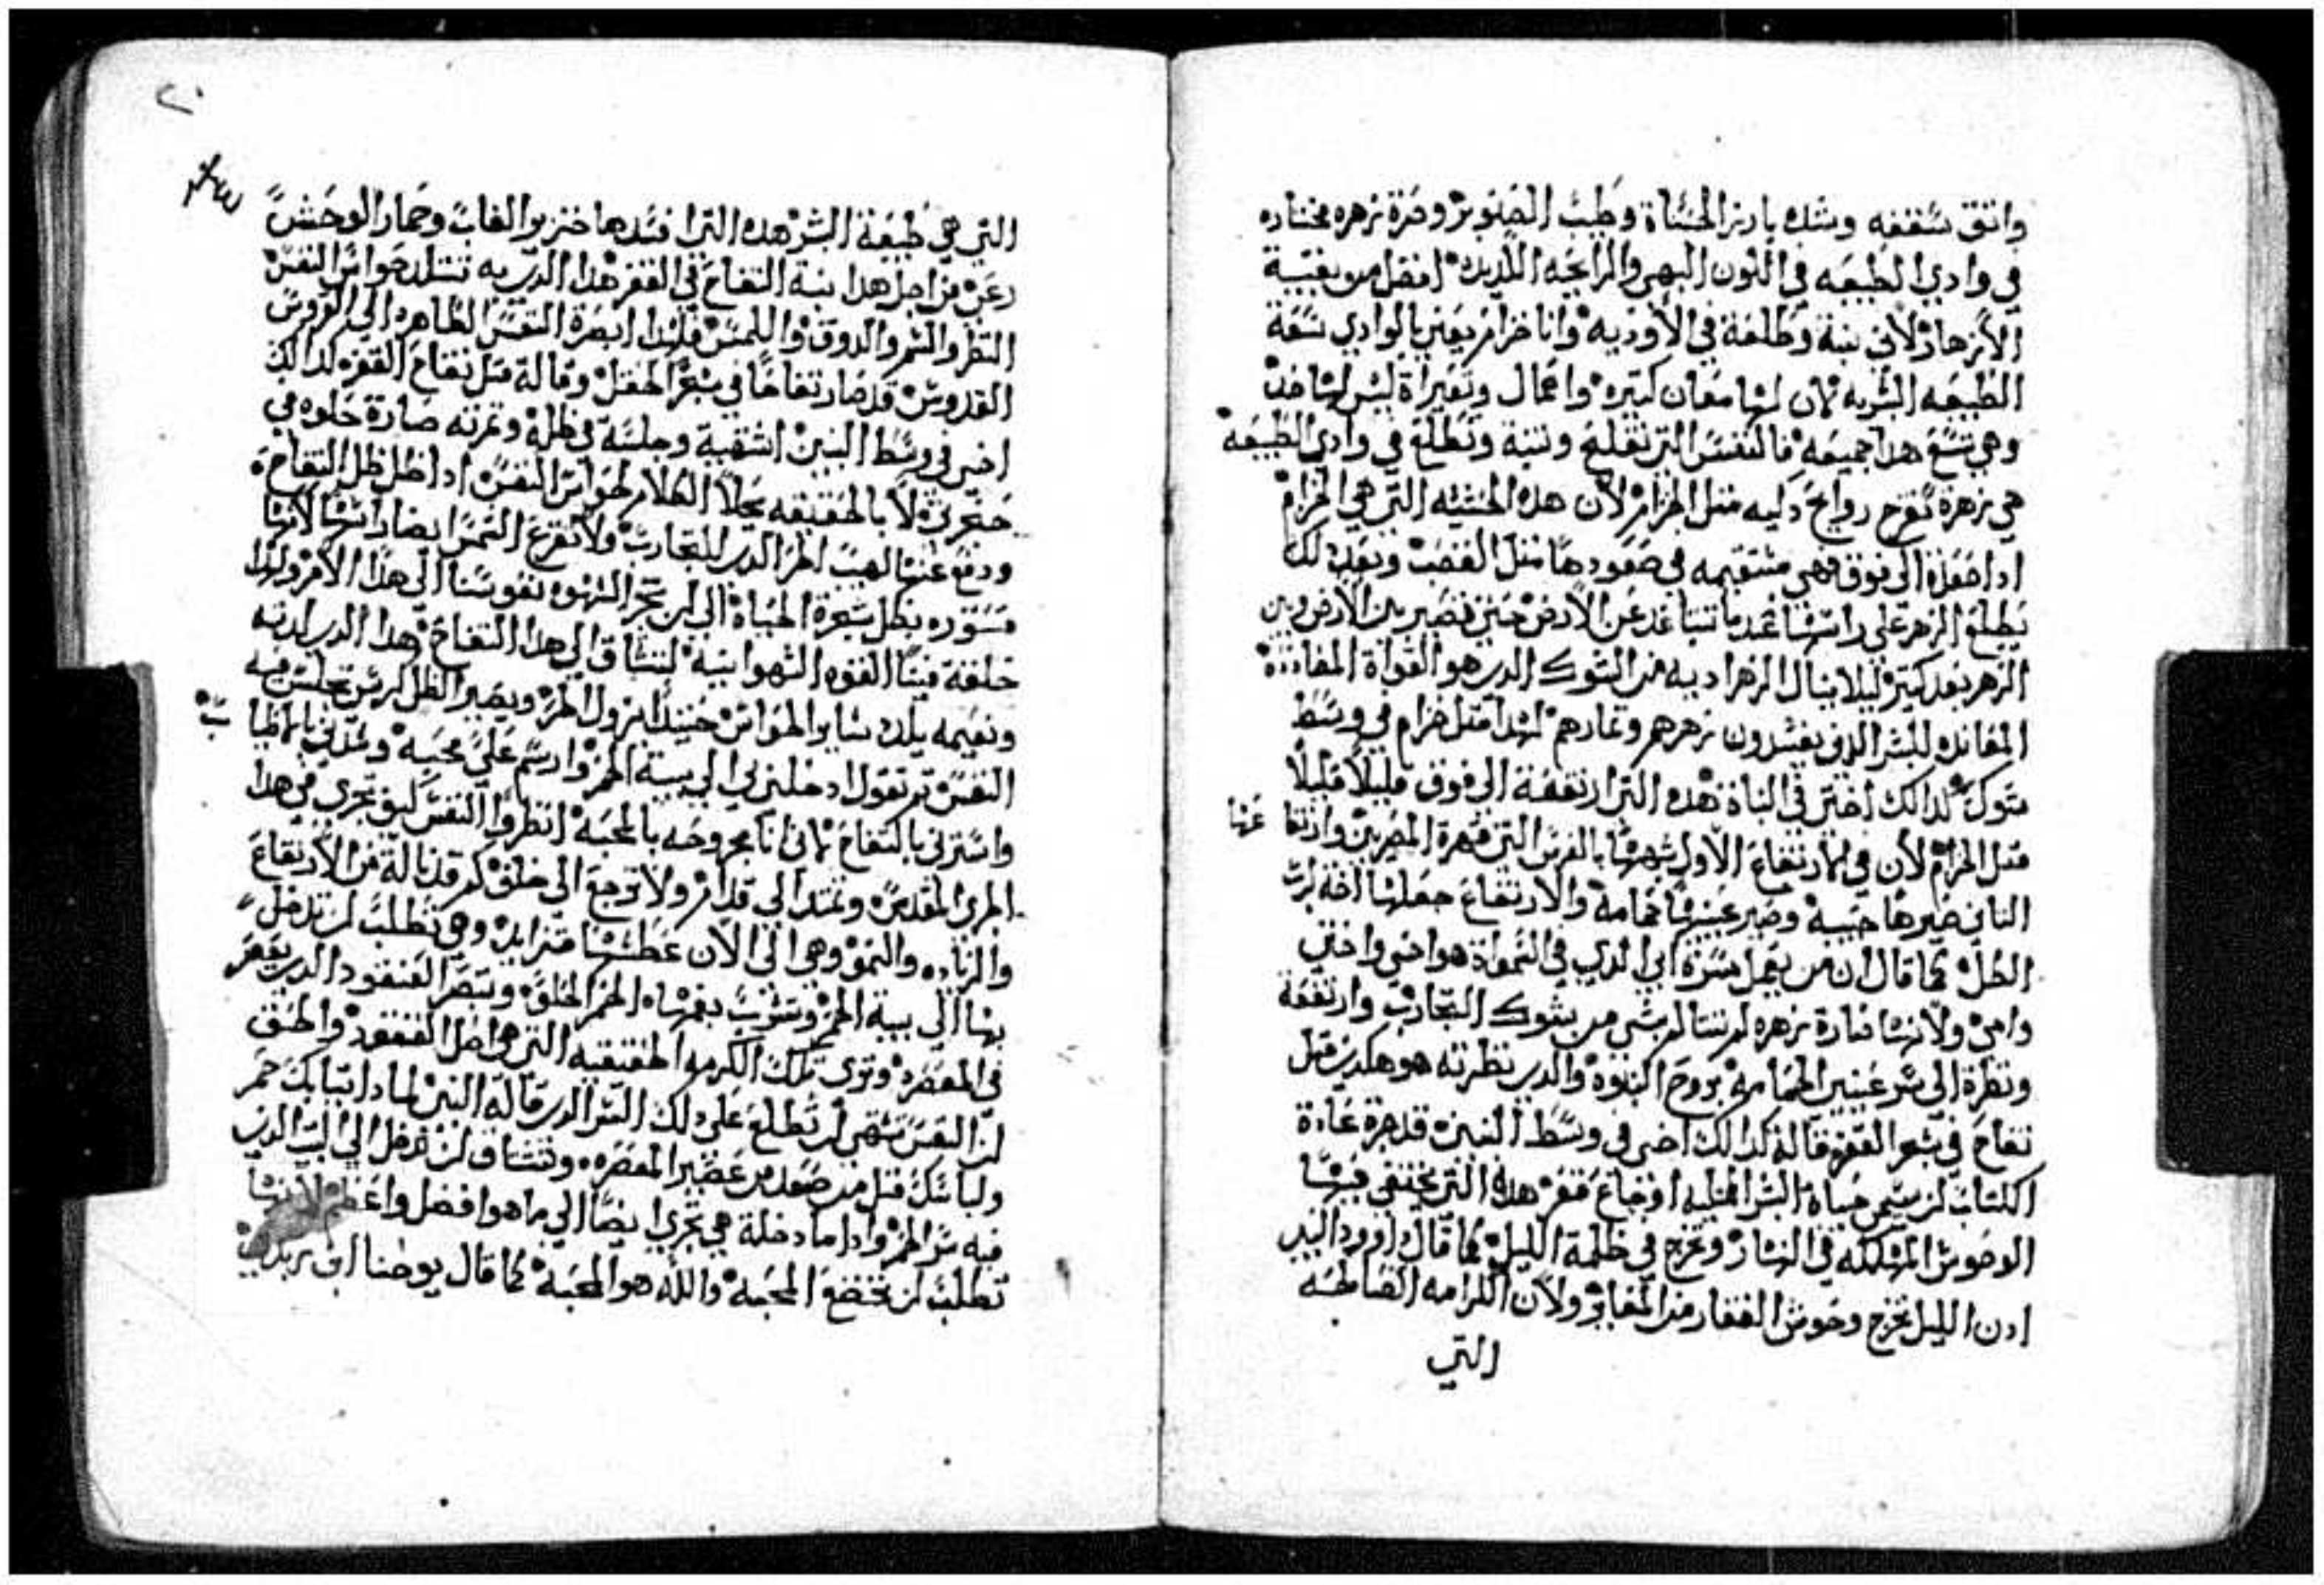 واتقق سقفنه وسك بارز الحسناة وطيب الصنوبر وصرة زهره مختاره
في وادي الطبيعه في اللون البهي والرايحه اللديده افضل من بقيية
الأزهار لأني نبتة وطلعة في الأوديه وانا خزام يعني بالوادي سعة
الطبيعه البشريه لان لها معان كتيره واعمال وتغيراة ليس لها حد
وهي تسع هدا جميعه فالنفس التي تفلح وتنبة وتطلع في وادي الطبيعه
هي زهرة تفوح روايح دكيه متل الخزام لأن هده الحشيشه التي هي الخزام
ادا صعدة الى فوق فهي مستقيمه في صعودها متل القصب وبعد دلك
يطلع الزهر على راسها عندما تتباعد عن الأرض حتى تصير بين الأرض وبين
الزهر بعد كتير ليلا ينال الزهر اديه من الشوك الدي هو القواة المعاندة
المعانده للبشر الدي يفسدون زهرهم وتمارهم لهدا متل خزام في وسط
شوك كدالك اختي في البناة هده التي ارتفعة الى فوق قليلاً قليلاً
متل الخزام لأن في الارتفاع الأول شبهها بالفرس التي قهرة المصريين وارتفاعها
التاني صيرها حبيبة وصير عينيها حمامة والارتفاع جعلها اخة لرب
الكل كما قال ان من يعمل مسرة ابي الدي في السمواة هو اخي واختي
وامي ولأنها صارة زهره لم تتالم بشي من شوك التجارب وارتفعة
ونظرة الى سر عينين الحمامة بروح النبوة والدي نظرته هو هكدي متل
تفاح في شعر القفره قالة كدالك اخي في وسط البنين قد جرة عادة
الكتاب ان يسمي حياة البشر الخليه اوجاع قفر هده التي يختفي فيها
الوحوش المهلكه في النهار وتخرج في ظلمة الليل كما قال داوود النبي
ادن الليل تخرج وحوش القفار من المغاير ولأن الكرامه الصالحه
التي
٢٠
التي هي طبيعة البشر هده التي افسدها خنزير الغاب وحمار الوحش
رعي من اجل هدا نبة التفاح في القفر هدا الدي به تتلد حواس النفس
النظر والشم والدوق واللمس فلهدا ابصرة النفس الطاهره الى العروس
القدوس قد صار تفاحًا في شعر الحقل وقالة متل تفاح القفره كدالك
اخي في وسط البنين اشتهية وجلسة في ظله وتمرته صارة حلوه في
حنجرتي لأ بالحقيقه يحلا الكلام لحواس النفس ادا ظل ظل التفاحه
ودفع عنها لهيب الحر الدي للتجارب ولا تقرع الشمس ايضا راسها لأنها
مستوره بظل شجرة الحياة الى ان تجر الشهوه نفوسنا الى هدا الأمر ولهدا
خلقة فينا القوه الشهوانيه لتشتاق الى هدا التفاح هدا الدي لدته
ونعيمه يلدد ساير الحواس حينيدا يزول الحر ويصير الظل كرسي تجلس فيه
النفس تم تقول ادخلني الى بية الخمر وارسم علي محبه وسدني بالاطياب
واسترني بالتفاح لاني انا مجروحه بالمحبه انظروا النفس كيف تجري في هدا
الجري المقدس وتمتد الى قدام ولا ترجع الى خلف كم قد نالة من الارتفاع
والزياده والنمو وهي الى الآن عطشها متزايد وهي تطلب ان تدخل
بها الى بية الخمر وتشرب بفمها الخمر الحلوه وتبصر العنقود الدي يعصر
في المعصره وترى تلك الكرمه الحقيقيه التي هي اصل العنقود والحق
ان النفس تشتهي ان تطلع على دلك السر الدي قاله النبي لمادا تيابك حمر
ولباسك متل من صعد من عصير المعصره وتشتاق ان تدخل الى البيت الدي
فيه سر الخمر وادا ما دخلة هي تجري ايضًا الى ما هو افضل واعظم لأنها
تطلب ان تخضع المحبه والله هو المحبه كما قال يوحنا ابن زبدي